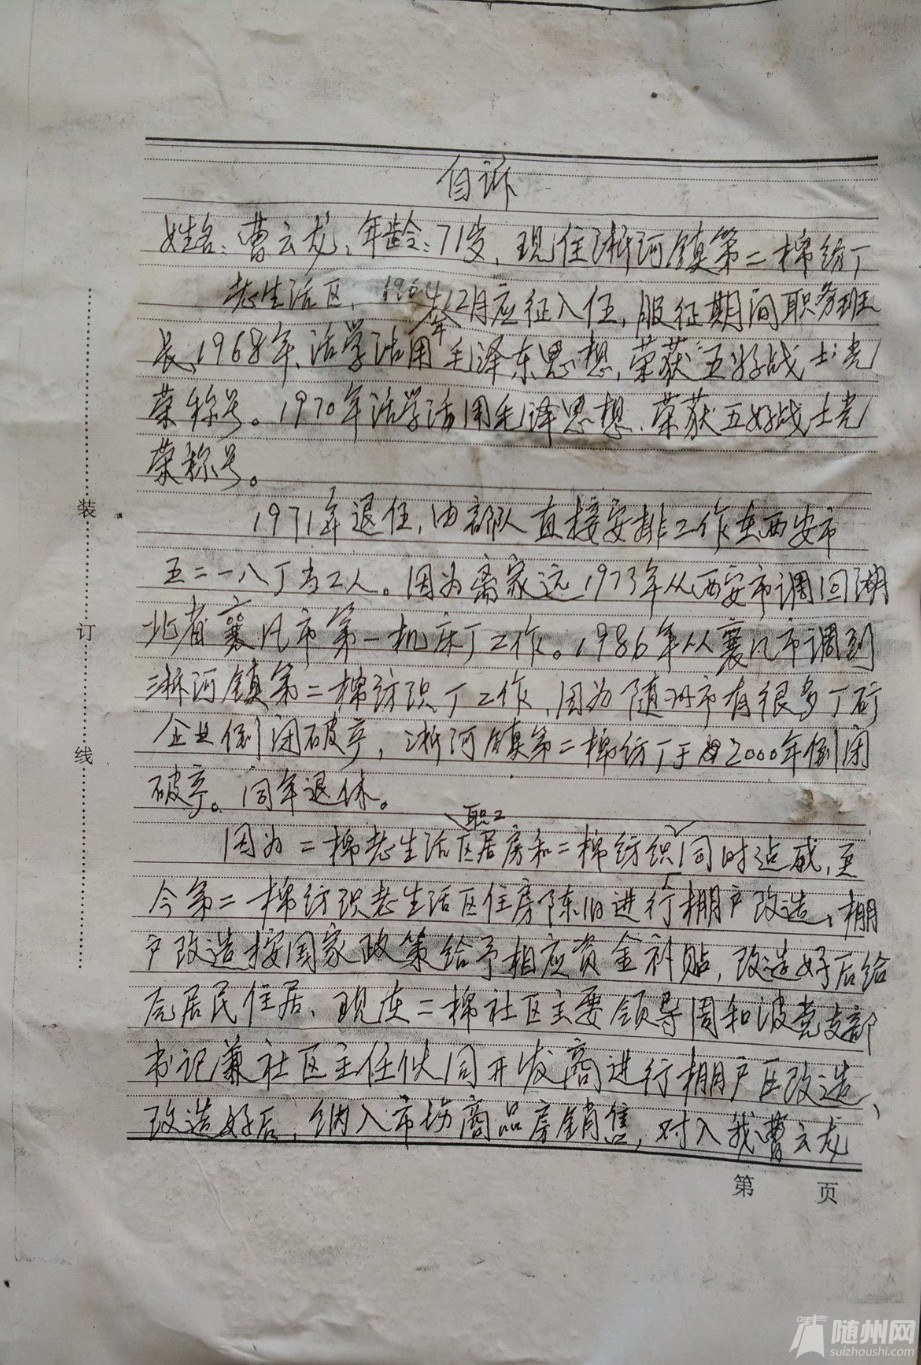 自诉
姓名:曹云龙、年龄:71岁,现住淅河镇第二棉纺厂
老生活区,1964年12月应征入伍,服征期间职务班
长、1968年、活学活用毛泽东思想,荣获五好战士光
荣称号。1970年活学活用毛泽思想、荣获五好战士光
荣称号。
1971年退伍,由部队直接安排工作在西安市
五二一八厂当工人。因为离家远1973年从西安市调回湖
北省襄凡市第一机床厂工作。1986年从襄凡市调到
淅河镇第二棉纺织厂工作,因为随州市有很多厂矿
企业倒闭破产,淅河镇第二棉纺厂于2000年倒闭
破产。同年退休。
因为二棉老生活区职工居房和二棉纺织厂同时造成,至
今第二棉纺织老生活区住房陈旧进行棚户改造、棚
户改造按国家政策给予相应资金补贴,改造好后给
居民住居、现在二棉社区主要领导周和波党支部
书记兼社区主任伙同开发商进行棚户区改造、
改造好后,纳入市场商品房销售,对入我曹云龙
第 页
装
订
线
随州网
suizhoushi.com